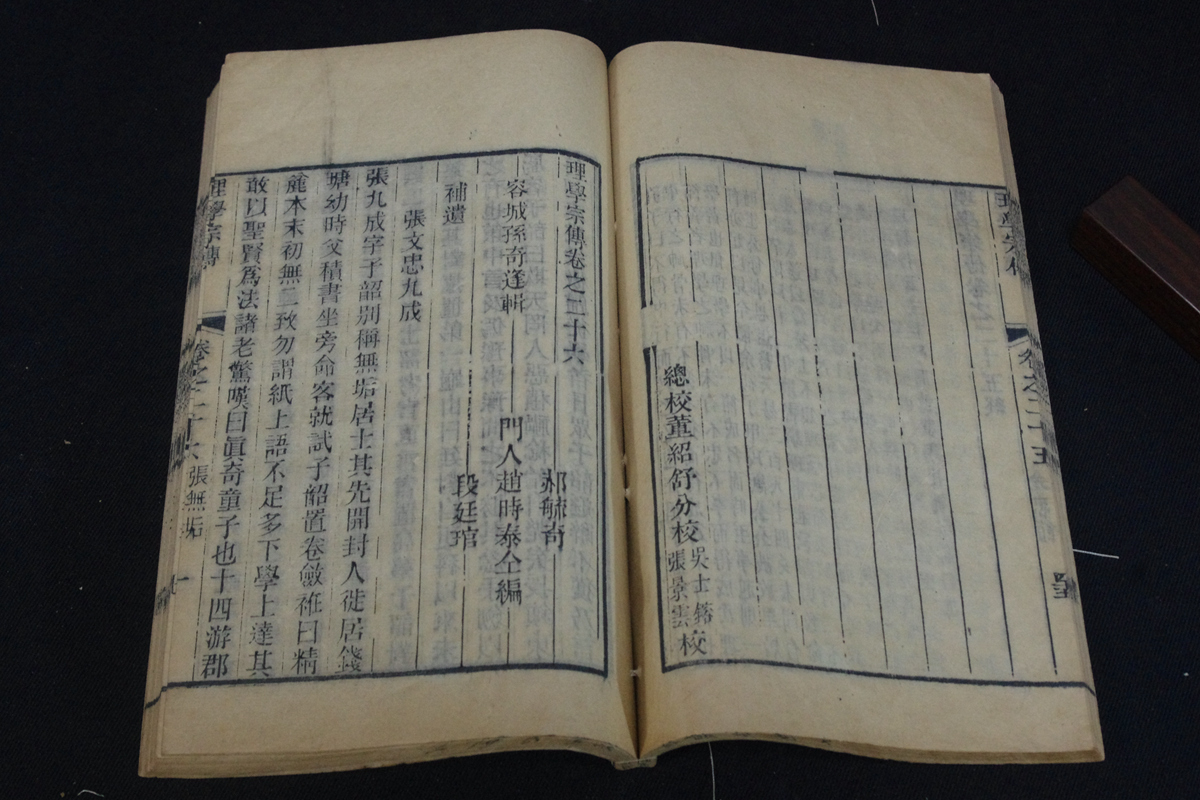 卷之二十五
總校董紹舒分校
吳士鎔
張景雲
校
理學宗傳卷之二十六
容城孫奇逢輯
郝毓奇
門人趙時泰仝編
段廷琯
補遺
張文忠九成
張九成字子韶別稱無垢居士其先開封人徙居錢
塘幼時父積書坐旁命客就試子韶置卷斂袵曰精
麄本末初無二致勿謂紙上語不足多下學上達其
敢以聖賢爲法諸老驚嘆曰眞奇童子也十四游郡
理學宗傳
卷之二十六
張無垢
一